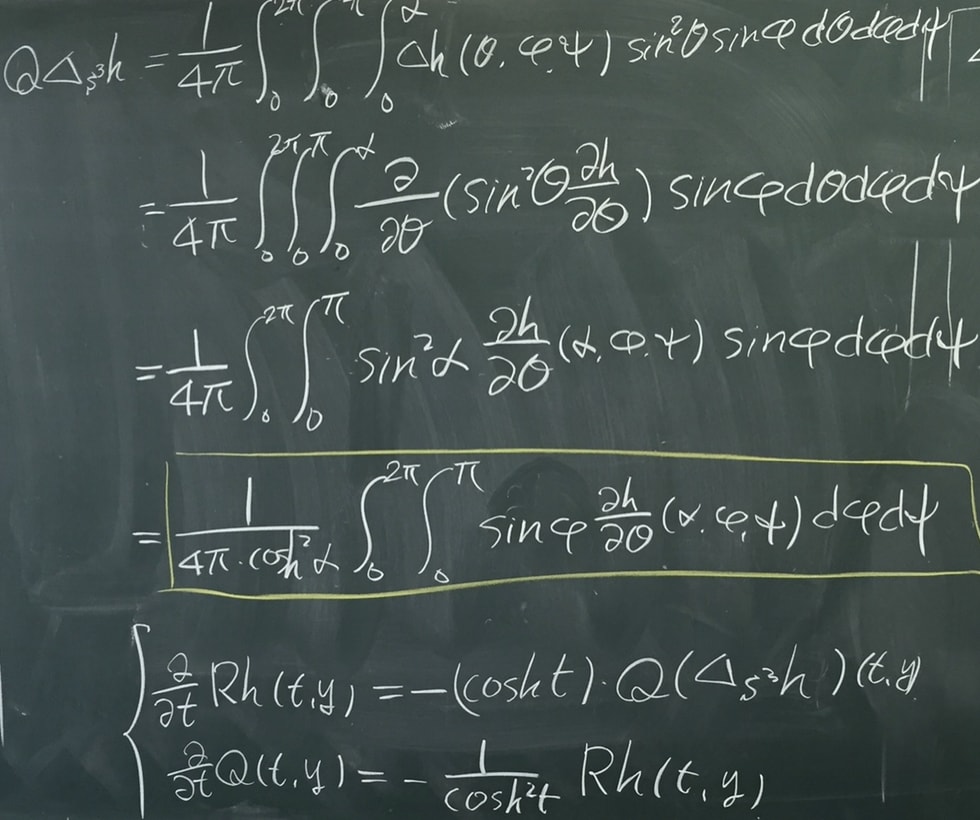 QΔ_{S³}h = 1/4π ∫₀^{2π} ∫₀^{π} ∫₀^{α} Δh (θ, φ, ψ) sin²θ sinφ dθdφdψ
= 1/4π ∫₀^{2π} ∫₀^{π} ∫₀^{α} ∂/∂θ (sin²θ ∂h/∂θ) sinφ dθdφdψ
= 1/4π ∫₀^{2π} ∫₀^{π} sin²α ∂h/∂θ (α, φ, ψ) sinφ dφdψ
= 1/(4π · cosh²α) ∫₀^{2π} ∫₀^{π} sinφ ∂h/∂θ (α, φ, ψ) dφdψ
∂/∂t Rh(t, y) = -(cosh t) · Q(Δ_{S³}h)(t, y)
∂/∂t Q(t, y) = - 1/cosh²t Rh(t, y)